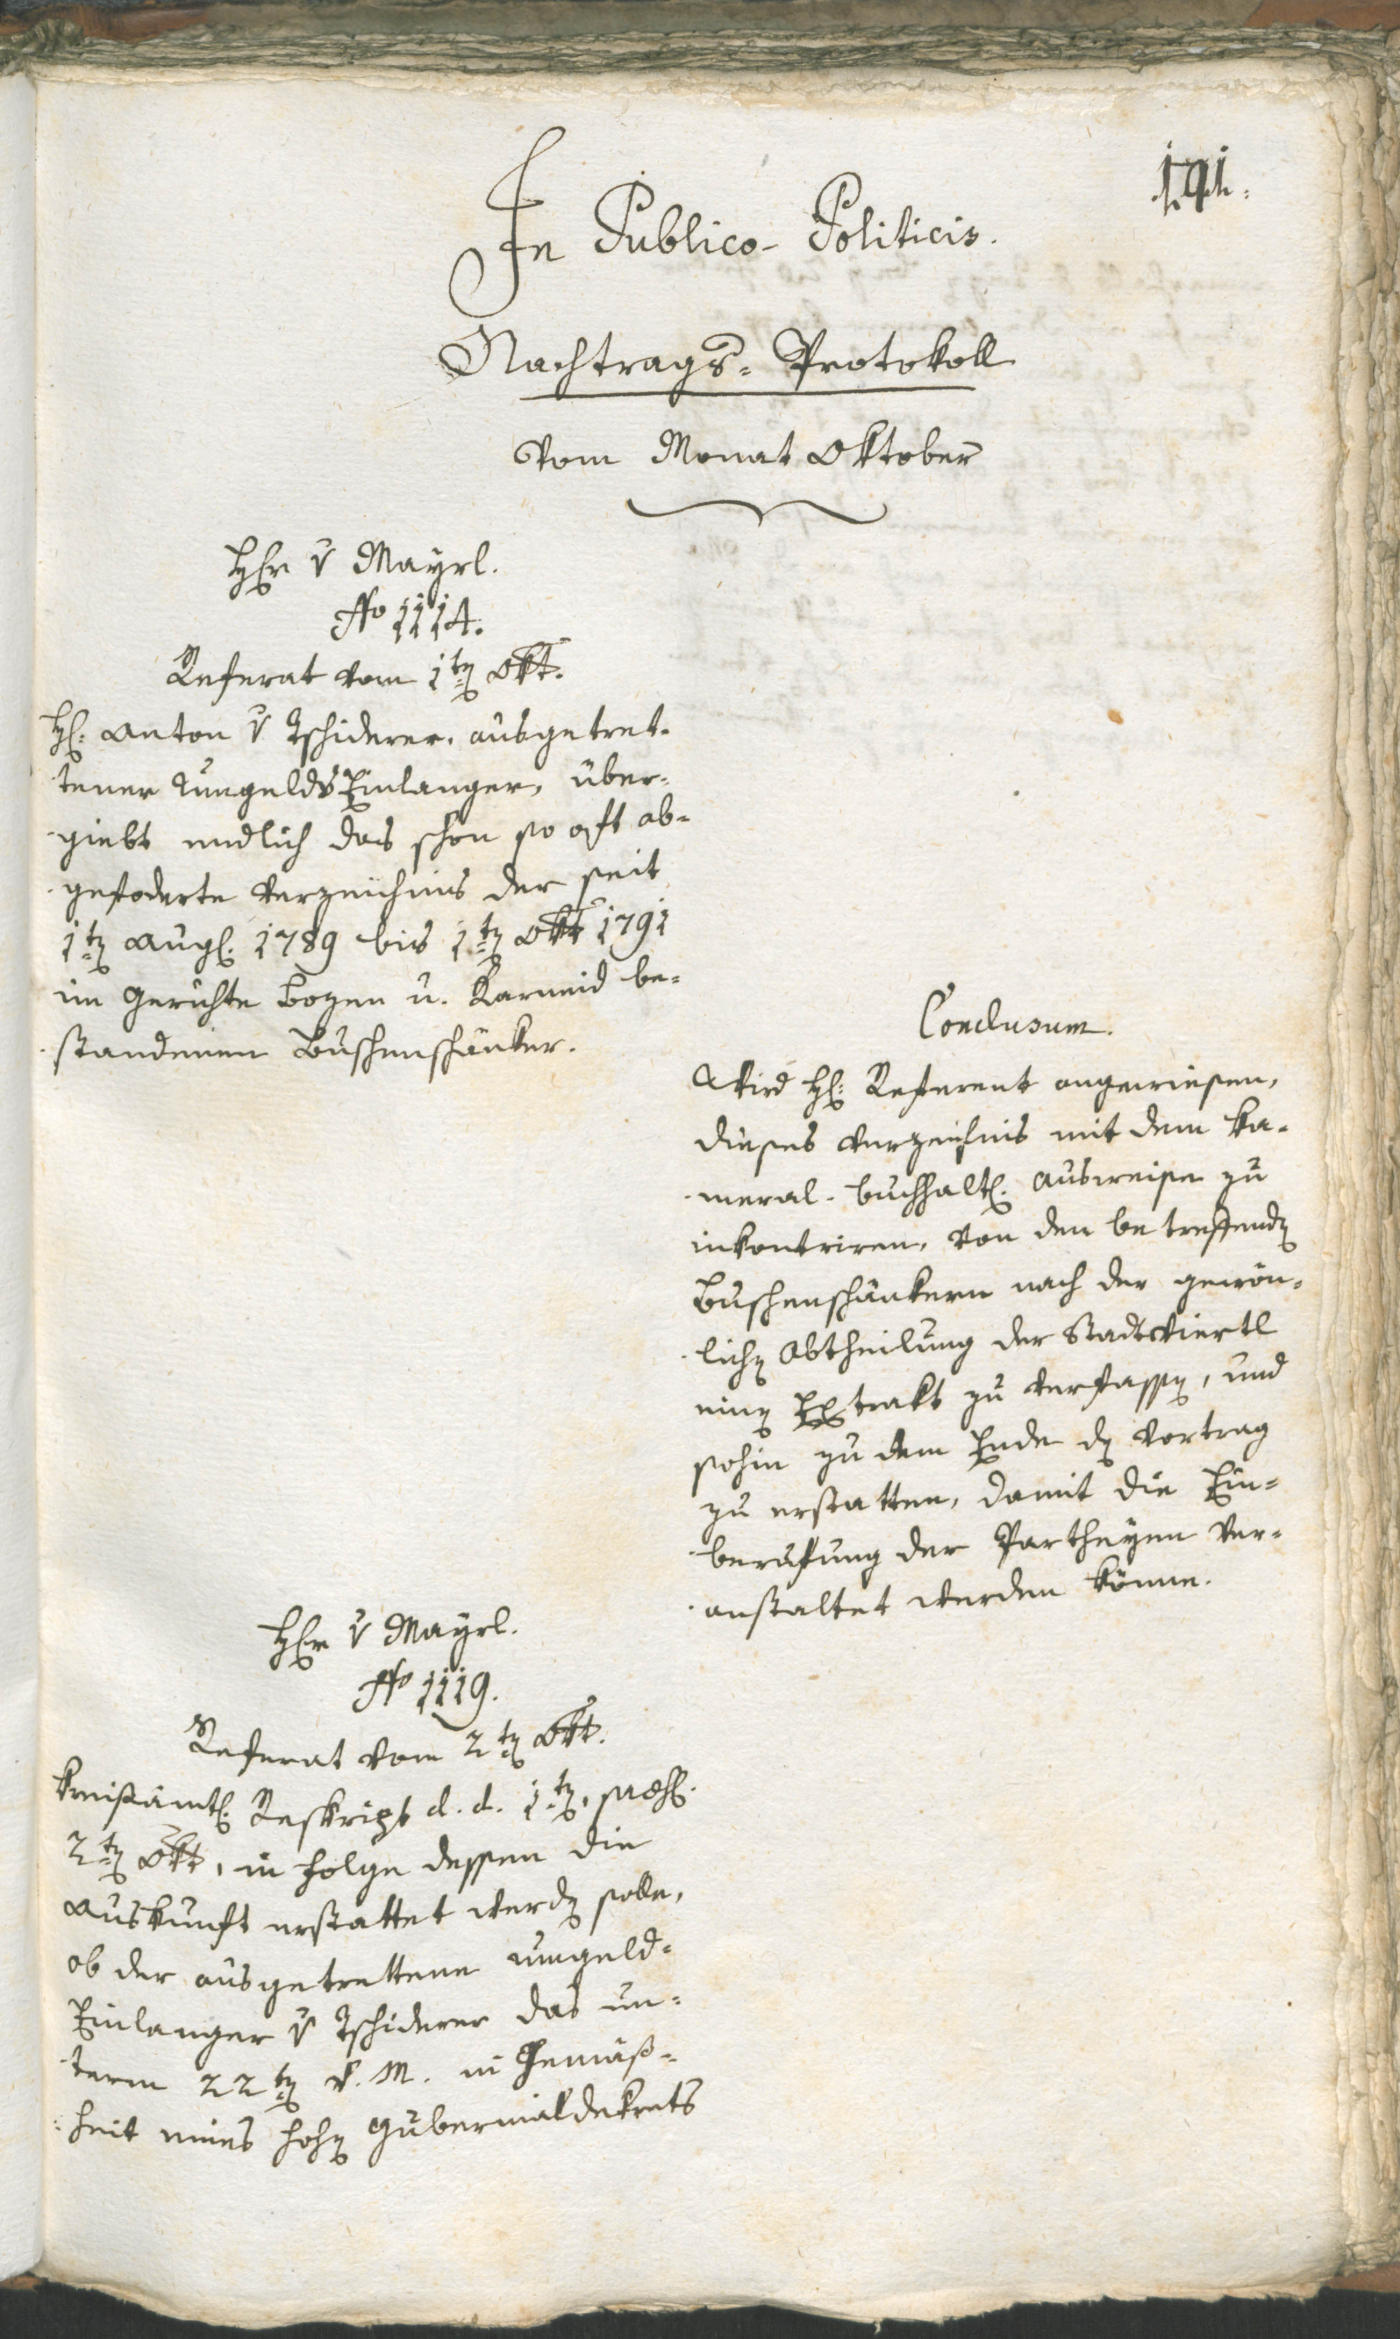 191.
In Publico-Politicis.
Nachtrags-Protokoll
vom Monat Oktober
Hhr v Mayrl.
No 1114.
Referat vom 1ten Okt.
H: Anton v Tschiderer. ausgetret-
tener Umgelds Einlanger, über-
giebt endlich das schon so oft ab-
gefoderte Verzeichnis der seit
1ten Aug. 1789 bis 1ten Okt 1791
im Gerichte Bozen u. Karneid be-
standenen Buschenschänker.
Conclusum.
Wird H: Referent angewiesen,
dieses Verzeichnis mit dem Ka-
meral-buchhalt. Ausweise zu
inkontriren, von den betreffenden
Buschenschänkern nach der gewön-
lichen Abtheilung der Stadtviertl
einen Extrakt zu verfassen, und
sohin zu dem Ende den Vortrag
zu erstatten, damit die Ein-
berufung der Partheyen ver-
anstaltet werden könne.
Hhr v Mayrl.
No 1119.
Referat vom 2ten Okt.
Kreisämtl. Reskript d. d. 1ten,
2ten Okt, in Folge dessen die
Auskunft erstattet werden solle,
ob der ausgetrettene Umgeld-
Einlanger v Tschiderer das un-
term 22ten v. M. in Gemäß-
heit eines hohen Gubernialdekrets